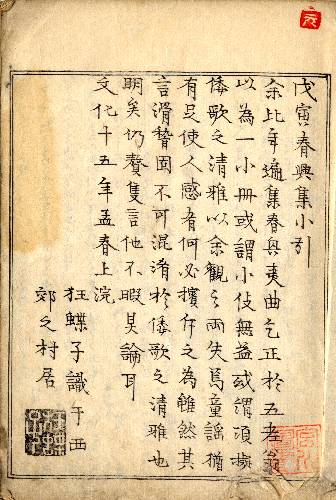 戊寅春興集小引
余比年遍集春興夷曲乞正於五老翁
以為一小冊或謂小伎無益或謂項
倭歌之清雅以余觀之両失焉童謡猶
有足使人感者何必擯斥之為雖然其
言滑稽固不可混淆於倭歌之清雅也
明矣仍贅隻言他不暇具論耳
文化十五年孟春上浣
狂蝶子識于西
郊之村居